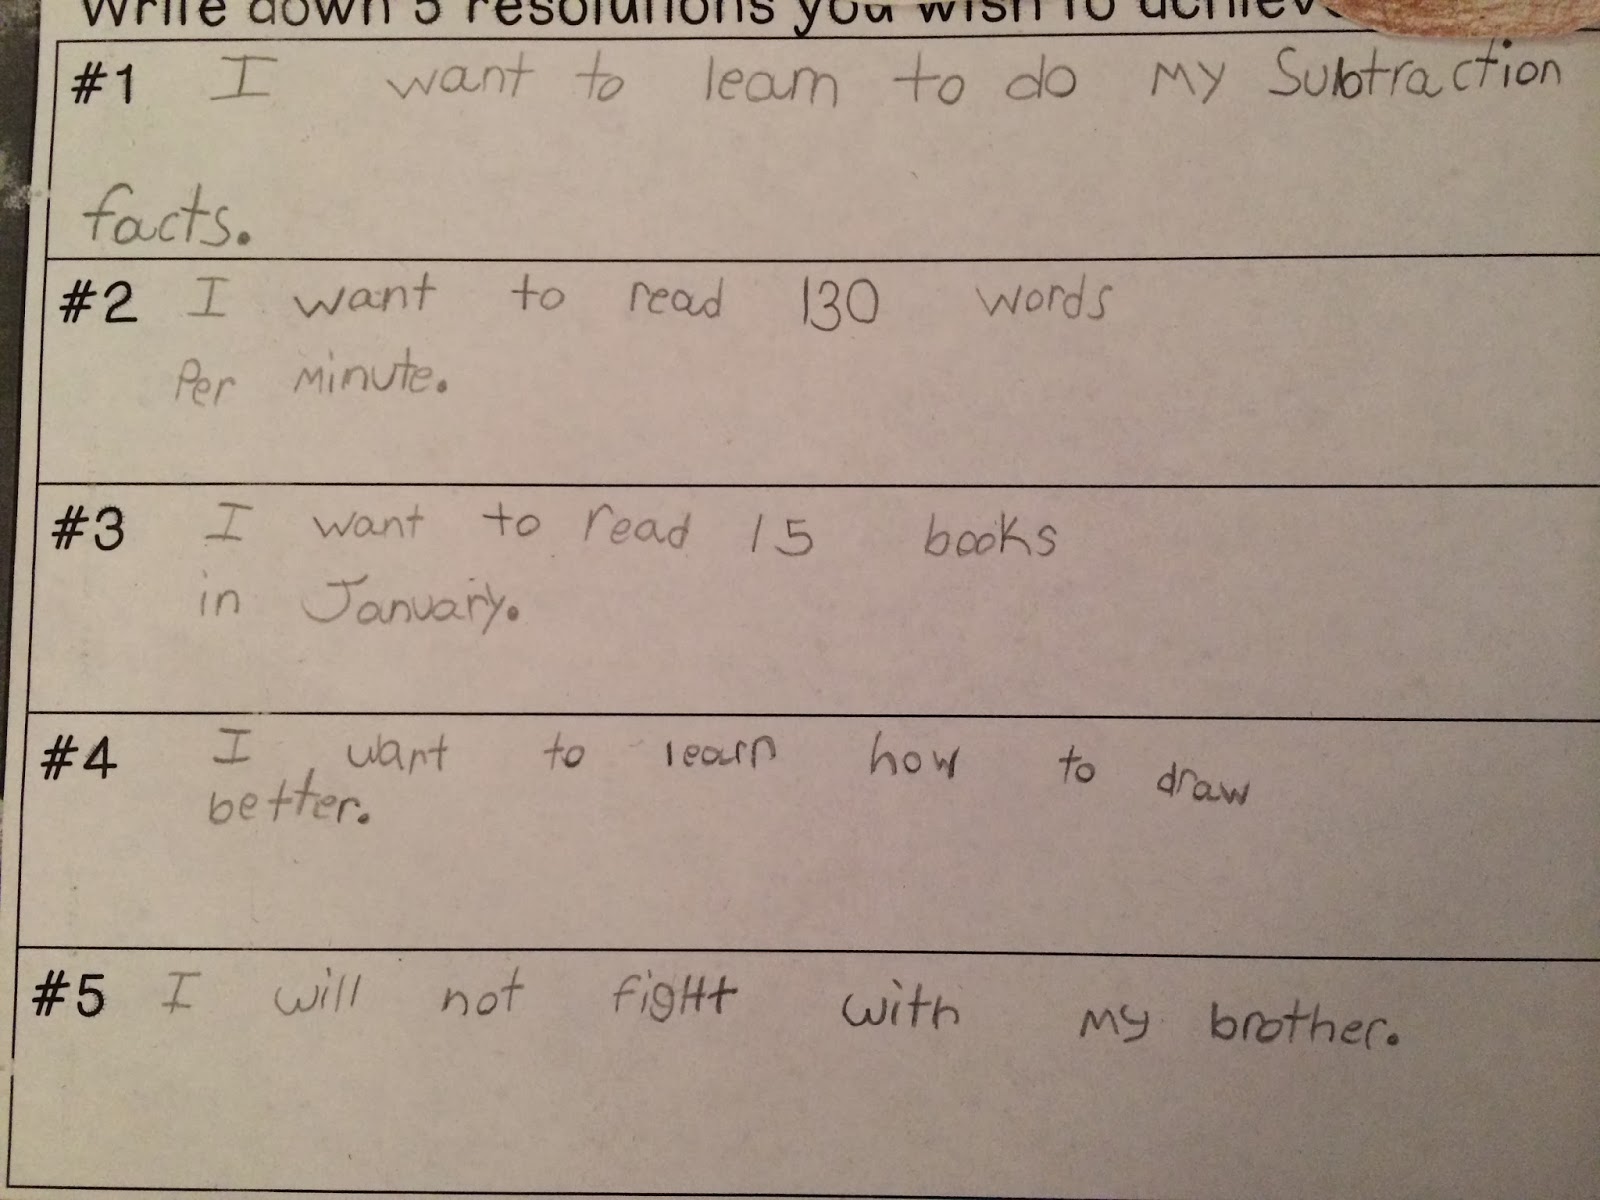 Write down 5 resolutions you wish to achiev
#1 I want to learn to do my Subtraction
facts.
#2 I want to read 130 words
Per minute.
#3 I want to read 15 books
in January.
#4 I want to learn how to draw
better.
#5 I will not fight with my brother.